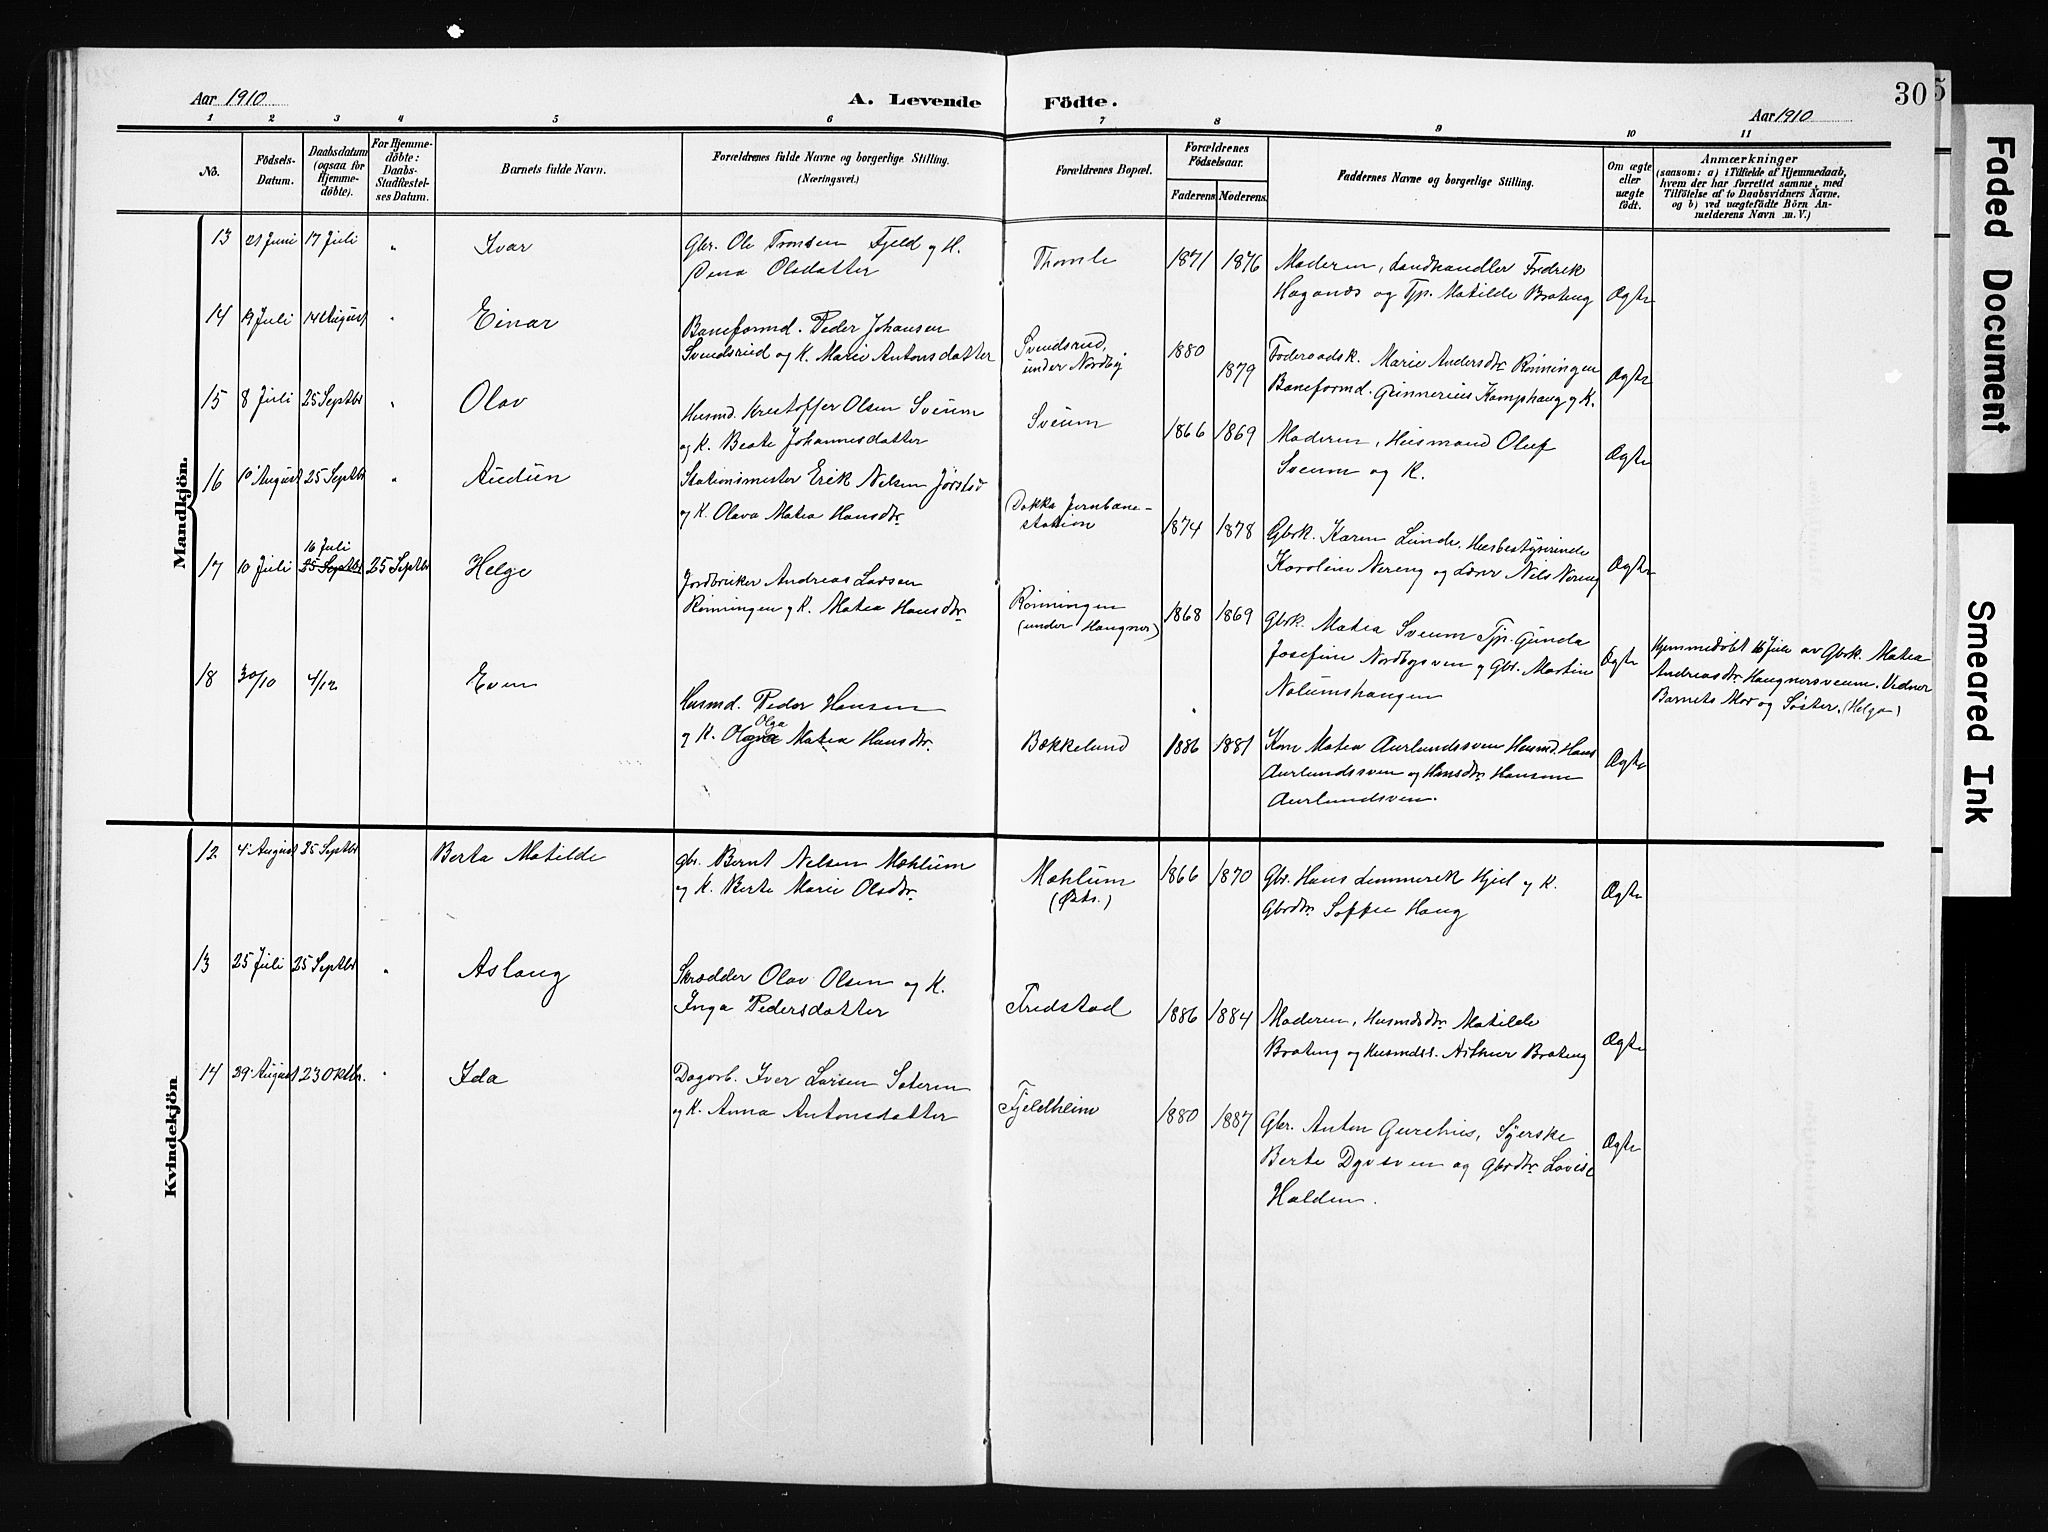 Aar 1910
A. Levende Födte.
30
Aar 1910
1 2 3 4 5 6 7 8 9 10 11
No.
Födsels-
Datum.
Daabsdatum
(ogsaa for
Hjemme-
döbte).
For Hjemme-
döbte:
Daabs-
Stadfæstel-
ses Datum.
Barnets fulde Navn.
Forældrenes fulde Navne og borgerlige Stilling.
(Næringsvei.)
Forældrenes Bopæl.
Forældrenes
Födselsaar.
Faderens Moderens.
Faddernes Navne og borgerlige Stilling.
Om ægte
eller
uægte
födt.
Anmærkninger
(saasom: a) i Tilfælde af Hjemmedaab,
hvem der har forrettet samme, med
Tilföielse af to Daabsvidners Navne.
og b) ved uægtefödte Börn An-
melderens Navn m. V.)
Mandkjön.
13 21 Juni 17 Juli " Ivar
Gbr. Ole Tronsen Fjeld og H.
Olsdatter
Thomle
1871 1876
Moderen, Landhandler Fredrik
Haganæs og Tjp. Matilde Brateng
Ægte
14 19 Juli 14 August " Einar
Baneformd. Peder Johansen
Svendsrud og K. Marie Antonsdatter
Svendsrud,
under Nordby
1880 1879
Føderaadsk. Marie Andersdtr. Rønningen
Baneformd. Gunnerius Kamphaug og K.
Ægte
15 8 Juli 25 Septbr " Olav
Husmd. Kristoffer Olsen Sveum
og K. Beate Johannesdatter
Sveum
1866 1869
Moderen, Husmand Oluf
Sveum og K.
Ægte
16 10 August 25 Septbr " Audun
Stationsmester Erik Nelsen Jørstad
og K. Olava Matea Hansdtr.
Dokka Jernbane-
station
1874 1878
Gbrk. Karen Lunde, Husbestyrerinde
Karoline Nereng og Lærer Nils Nereng
Ægte
17 10 Juli 16 Juli 25 Septbr 25 Septbr Helge
Jordbruker Andreas Larsen
Rønningen og K. Matea Hansdtr.
Rønningen
(under Haugner)
1868 1869
Gbrk. Matea Sveum Tjp. Gunda
Josefine Nordbysven og Gbr. Martin
Nølumshaugen
Ægte
Hjemmedøbt 16 Juli av Gbrk. Matea
Andreasdtr. Haugnersveum. Vidner
Barnets Mor og Søster. (Helga)
18 30/10 4/12 Even
Husmd. Peder Hansen
Olga
og K. Matea Hansdtr.
Bækkelund
1886 1881
Kone Matea Aurlundssven Husmd. Hans
Aurlundssven og Hansdtr. Hansine
Aurlundsven.
Ægte
Kvindekjön
12 4 August 25 Septbr Berta Matilde
Gbr. Bernt Nelsen Mæhlum
og K. Berte Marie Olsdtr.
Mæhlum
(Østs.)
1866 1870
Gbr. Hans Lemmerek og K.
Gbrdtr. Soffie Haug
Ægte
13 25 Juli 25 Septbr " Aslaug
Skrædder Olav Olsen og K.
Inga Pedersdatter
Fredstad
1886 1884
Moderen, Husmdsdtr. Matilde
Brateng og Husmdss. Arthur Brateng
Ægte
14 29 August 23 Oktbr. " Ida
Dagarb. Iver Larsen Sæteren
og K. Anna Antonsdatter
Fjeldheim
1880 1887
Gbr. Anton Syerske
Berte og Gbrdtr. Lovise
Halden.
Ægte
Faded Document
Smeared Ink
5